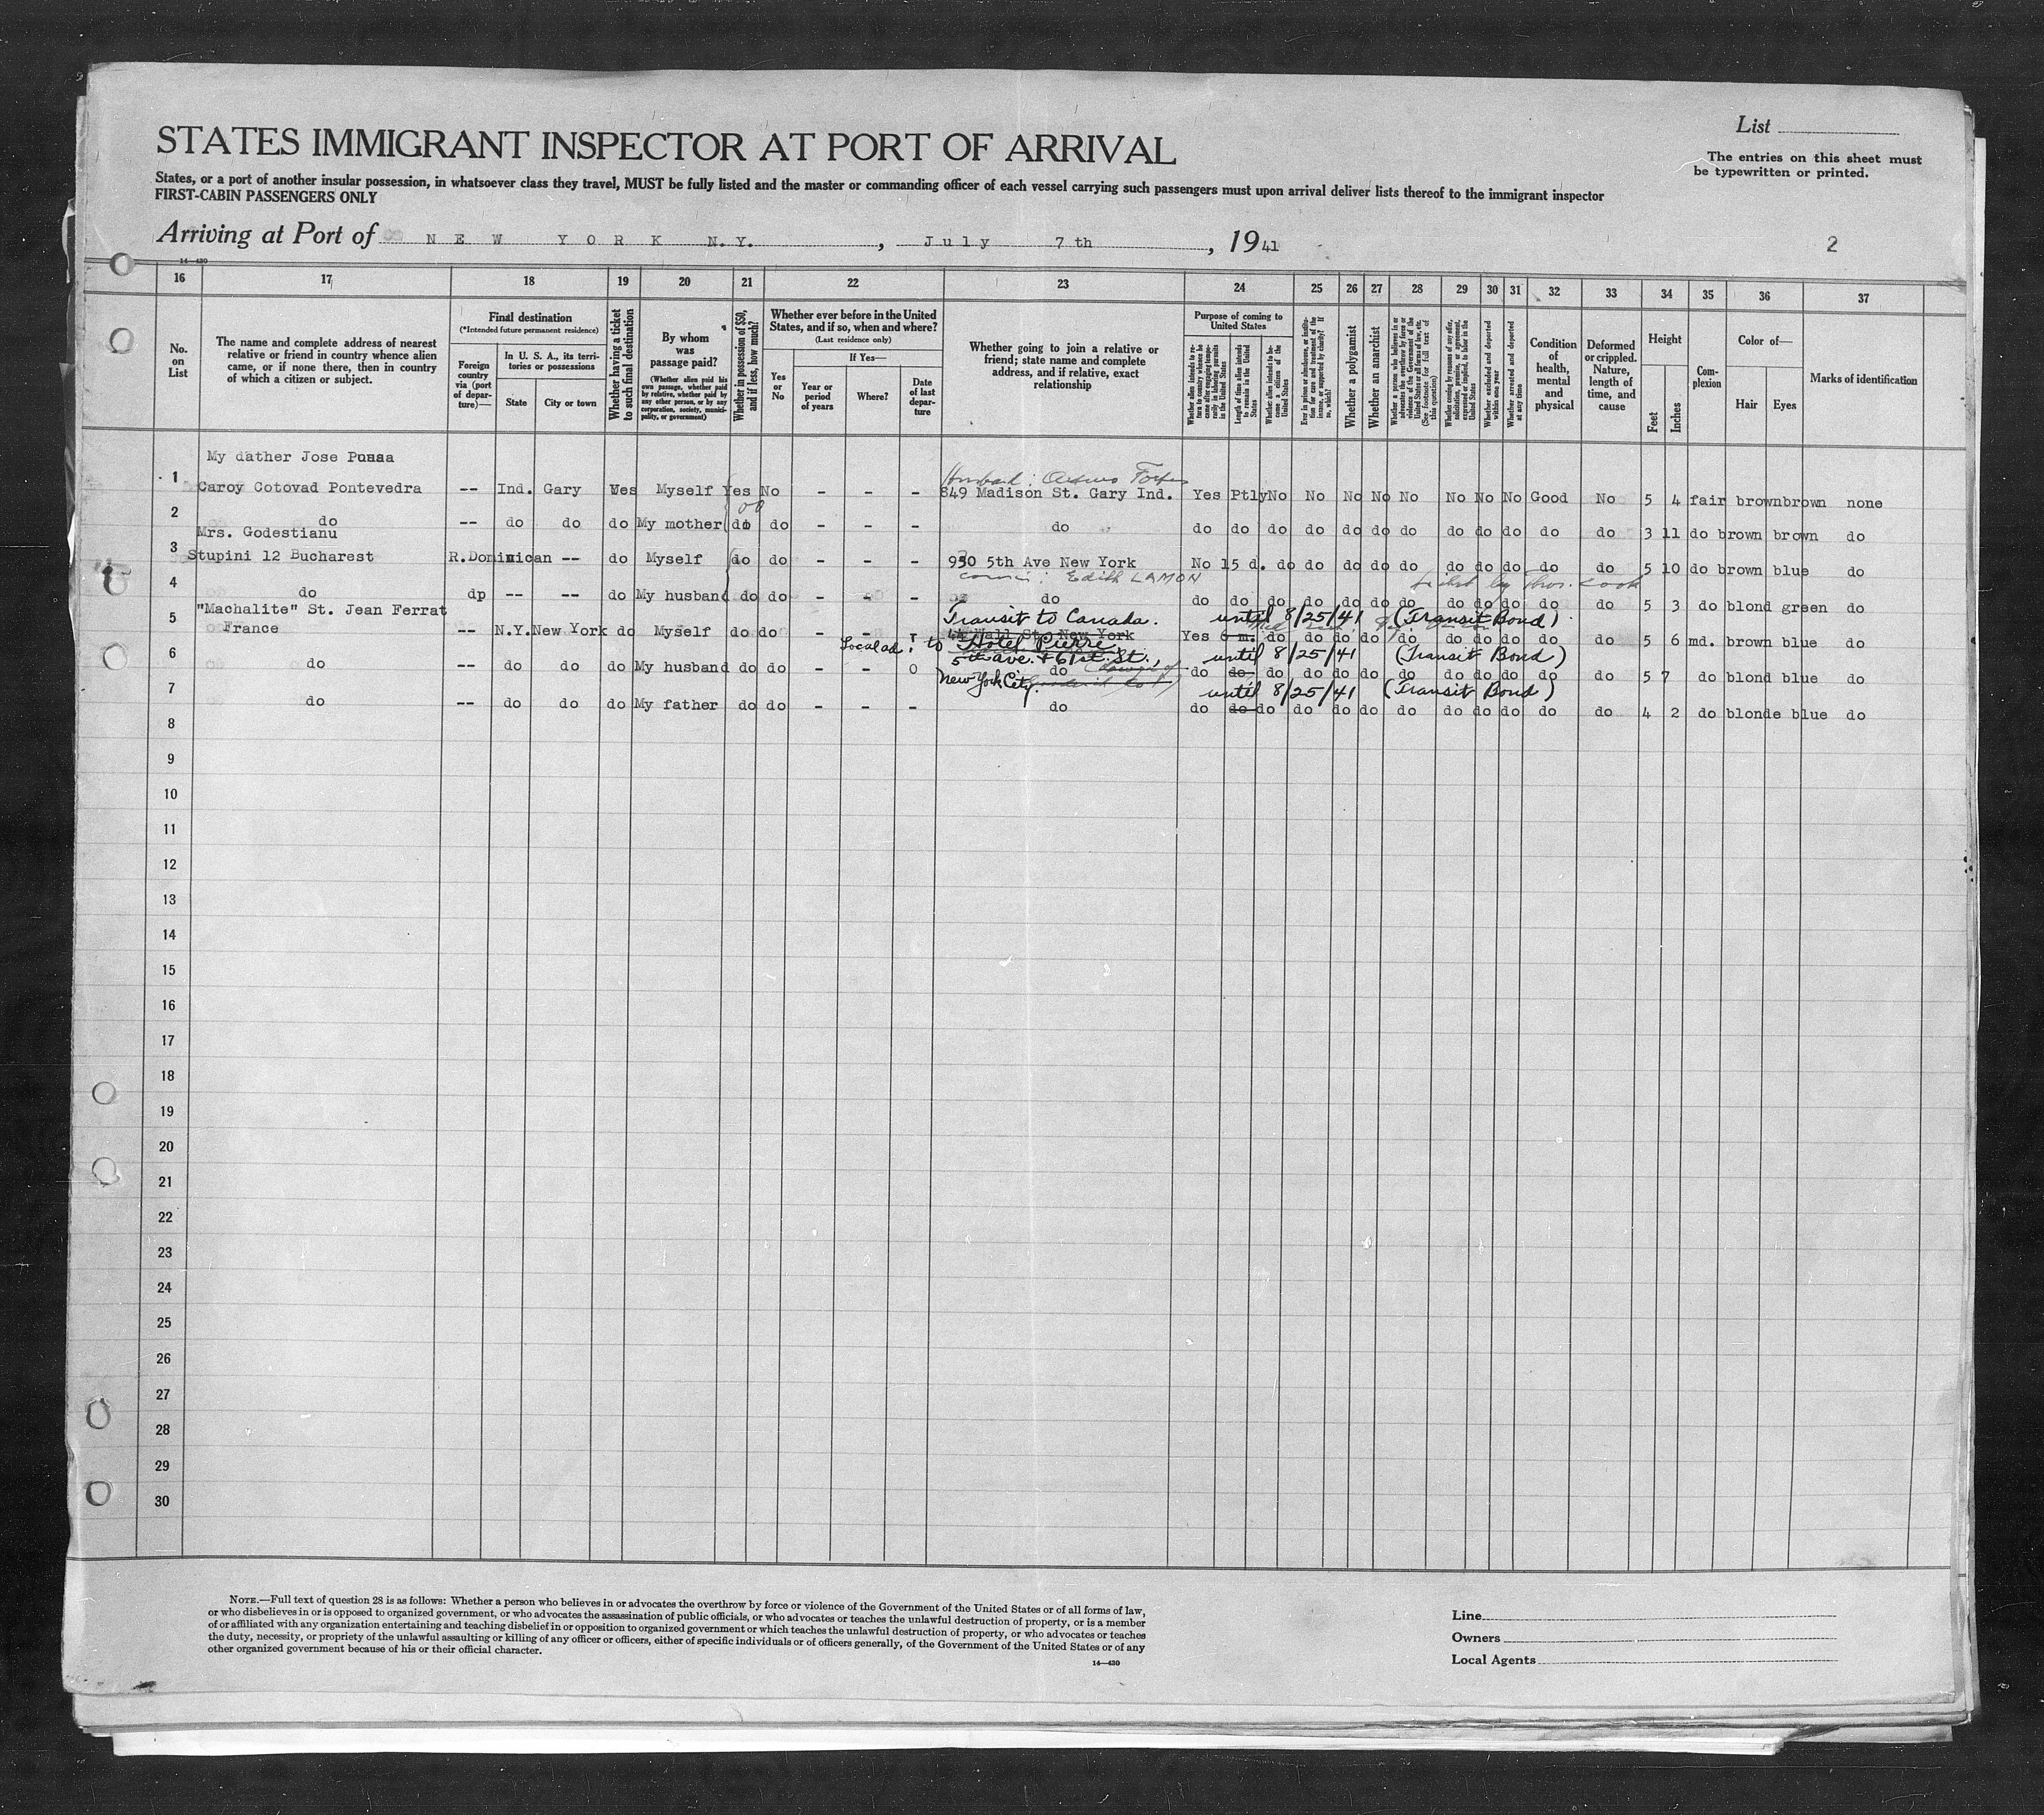 STATES IMMIGRANT INSPECTOR AT PORT OF ARRIVAL
List
The entries on this sheet must
be typewritten or printed.
States, or a port of another insular possession, in whatsoever class they travel, MUST be fully listed and the master or commanding officer of each vessel carrying such passengers must upon arrival deliver lists thereof to the immigrant inspector
FIRST-CABIN PASSENGERS ONLY
Arriving at Port of NEW YORK N.Y., July 7th, 1941
2
14—430
16 17 18 19 20 21 22 23 24 25 26 27 28 29 30 31 32 33 34 35 36 37
No. on List
The name and complete address of nearest
relative or friend in country whence alien
came, or if none there, then in country
of which a citizen or subject.
Final destination
(*Intended future permanent residence)
Foreign country via (port of departure)—
In U. S. A., its territories or possessions
State
City or town
Whether having a ticket to such final destination
By whom was passage paid?
(Whether alien paid his own passage, whether paid by relative, whether paid by any other person, or by any corporation, society, municipality, or government)
Whether in possession of $50, and if less, how much?
Whether ever before in the United States, and if so, when and where?
(Last residence only)
Yes or No
If Yes—
Year or period of years
Where?
Date of last departure
Whether going to join a relative or
friend; state name and complete
address, and if relative, exact
relationship
Purpose of coming to United States
Length of time alien intends to remain in the United States
Whether alien intends to become a citizen of the United States
Whether a polygamist
Whether an anarchist
(See footnote for full text of this question)
Whether excluded and deported within one year
Whether arrested and deported at any time
Condition of health, mental and physical
Deformed or crippled. Nature, length of time, and cause
Height
Feet
Inches
Complexion
Color of—
Hair
Eyes
Marks of identification
My dather Jose
1 Caroy Cotovad Pontevedra -- Ind. Gary Yes Myself Yes No - - - 849 Madison St. Gary Ind. Yes Ptly No No No No No No No No Good No 5 4 fair brown brown none
Husband:
2 do -- do do do My mother do do - - - do do do do do do do do do do do do do 3 11 do brown brown do
Mrs. Godestianu
3 Stupini 12 Bucharest R.Dominican -- do Myself do do - - - 930 5th Ave New York No 15 d. do do do do do do do do do do 5 10 do brown blue do
cousin: Edith LAMON
ticket by Thos. Cook
4 do dp -- -- do My husband do do - - - do do do do do do do do do do do do do 5 3 do blond green do
"Machalite" St. Jean Ferrat
Transit to Canada. until 8/25/41 (Transit Bond)
5 France -- N.Y. New York do Myself do do - - Wall St. New York Yes 6 m. do do do do do do do do do do 5 6 md. brown blue do
to Hotel Pierre,
5th ave. & 61st. St., until 8/25/41 (Transit Bond)
6 do -- do do do My husband do do - - 0 do do do do do do do do do do do do do 5 7 do blond blue do
New York City. until 8/25/41 (Transit Bond)
7 do -- do do do My father do do - - - do do do do do do do do do do do do do 4 2 do blonde blue do
8
9
10
11
12
13
14
15
16
17
18
19
20
21
22
23
24
25
26
27
28
29
30
NOTE.—Full text of question 28 is as follows: Whether a person who believes in or advocates the overthrow by force or violence of the Government of the United States or of all forms of law,
or who disbelieves in or is opposed to organized government, or who advocates the assassination of public officials, or who advocates or teaches the unlawful destruction of property, or is a member
of or affiliated with any organization entertaining and teaching disbelief in or opposition to organized government or which teaches the unlawful destruction of property, or who advocates or teaches
the duty, necessity, or propriety of the unlawful assaulting or killing of any officer or officers, either of specific individuals or of officers generally, of the Government of the United States or of any
other organized government because of his or their official character.
14—430
Line
Owners
Local Agents